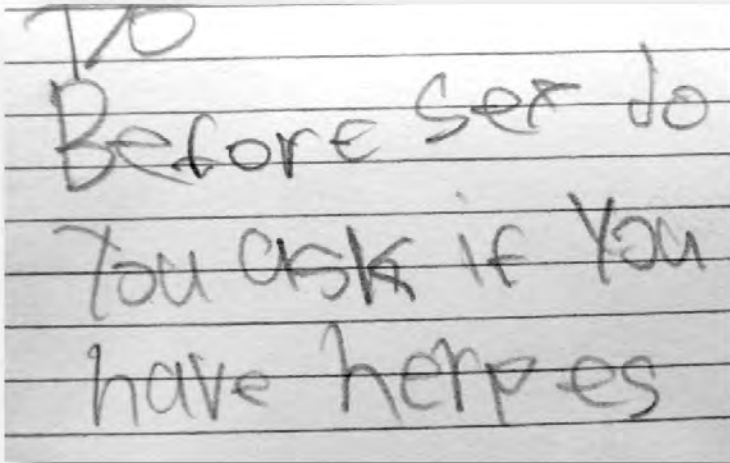 Do
Before sex do
You ask if You
have herpes